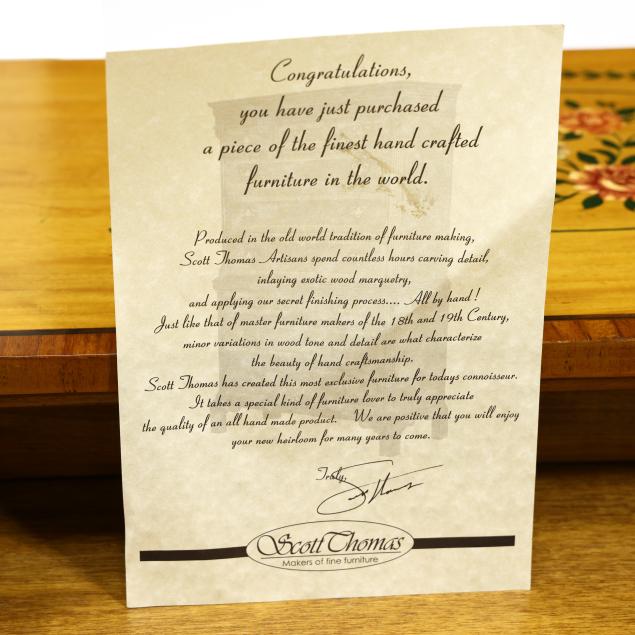 Congratulations,
you have just purchased
a piece of the finest hand crafted
furniture in the world.
Produced in the old world tradition of furniture making,
Scott Thomas Artisans spend countless hours carving detail,
inlaying exotic wood marquetry,
and applying our secret finishing process.... All by hand !
Just like that of master furniture makers of the 18th and 19th Century,
minor variations in wood tone and detail are what characterize
the beauty of hand craftsmanship.
Scott Thomas has created this most exclusive furniture for todays connoisseur.
It takes a special kind of furniture lover to truly appreciate
the quality of an all hand made product. We are positive that you will enjoy
your new heirloom for many years to come.
Truly,
Scott Thomas
Makers of fine furniture